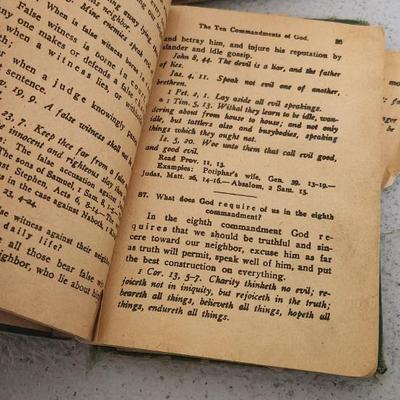 neighbor.
When is false witness borne
Mine enemies speak
False witness is borne in court,
one makes or defends a false
a witness lies, or
when a judge knowingly
sentence.
19, 9. A false witness shall
23, 7. Keep thee far from a false
innocent and righteous slay thou
The false accusation
The sons of Samuel, 1 Sam. 8,
Stephen, Acts 6, 8-14.
in the case against Naboth, 1
23, 4-24.
false witness against their
daily life?
all those bear false
neighbor, who lie about him
The Ten Commandments of God. 85
and betray him, and injure his reputation by
slander and idle gossip.
John 8, 44. The devil is a liar, and the father
of her.
Jas. 4, 11. Speak not evil one of another,
brethren.
1 Pet. 2, 1. Lay aside all evil speakings.
1 Tim. 5, 13. Withal they learn to be idle, wan-
dering about from house to house; and not only
idle, but tattlers also and busybodies, speaking
things which they ought not.
Is. 5, 20. Woe unto them that call evil good,
and good evil.
Read Prov. 11, 13.
Examples: Potiphar's wife, Gen. 39, 13-19.—
Judas, Matt. 26, 14-16.—Absalom, 2 Sam. 15.
87. What does God require of us in the eighth
commandment?
In the eighth commandment God re-
quires that we should be truthful and sin-
cere toward our neighbor, excuse him as far
as truth will permit, speak well of him, and put
the best construction on everything.
1 Cor. 13, 5-7. Charity thinketh no evil; re-
joiceth not in iniquity, but rejoiceth in the truth;
beareth all things, believeth all things, hopeth all
things, endureth all things.